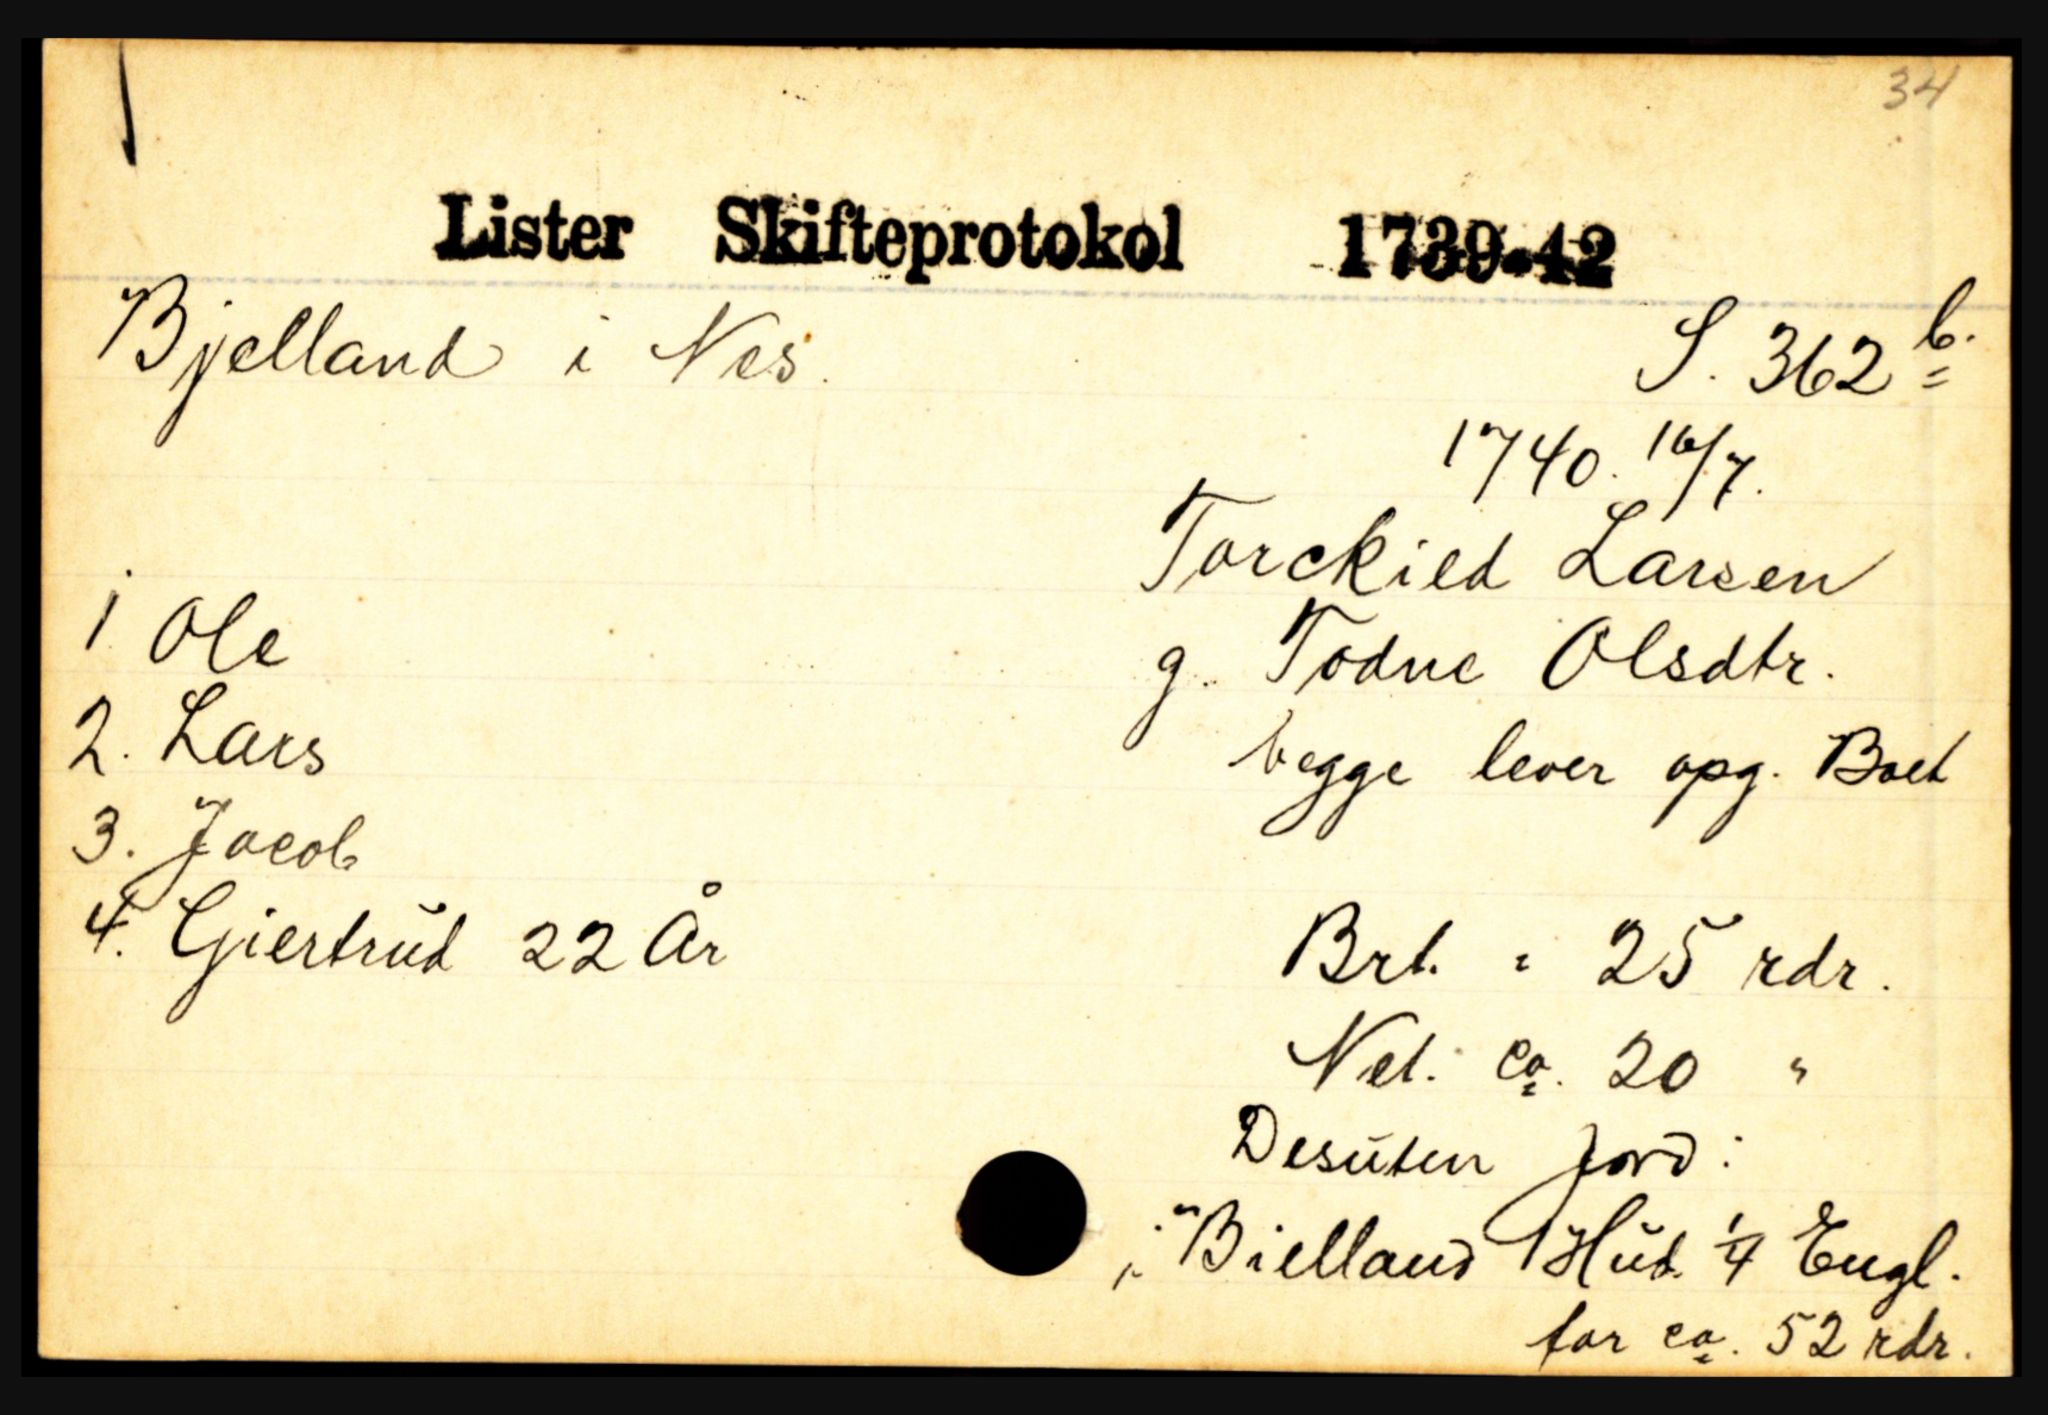 34
Lister Skifteprotokol 1739-42
Bjelland i Nes.
S. 362 b.
1740. 16/7.
Torckield Larsen
g. Todne Olsdtr.
begge lever opg. Boet
1 Ole
2. Lars
3. Jacob
4. Giertrud 22 År
Brt. = 25 rdr.
Net. ca. 20 "
Desuten Jord:
i Bielland 1 Hud 1/4 Engl.
for ca. 52 rdr.